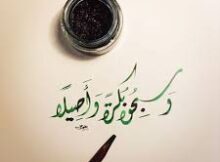 وَسَبِّحُوهُ بُكْرَةً وَأَصِيلًا